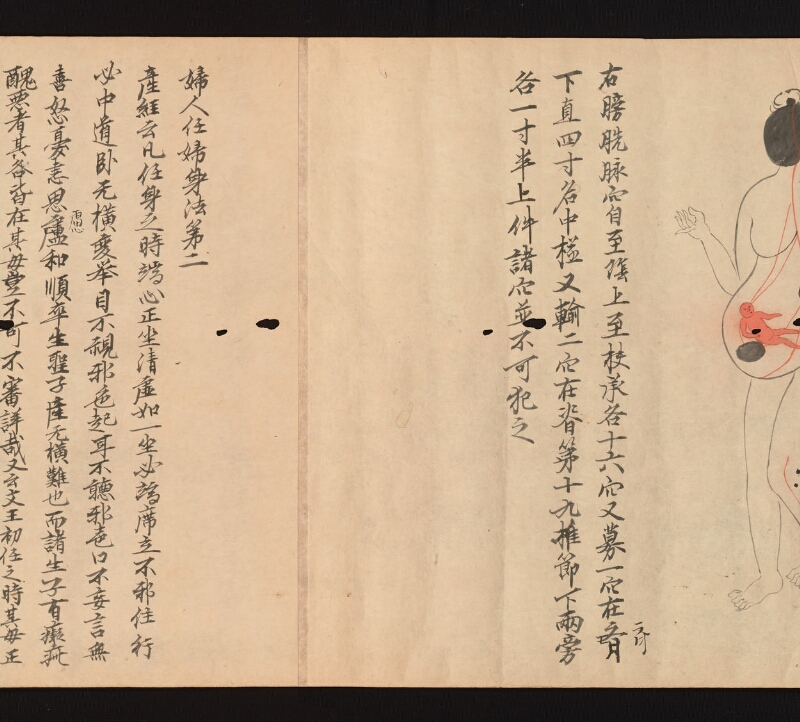 右膀胱脉穴自至陰上至扶承各十六穴又募一穴在齐
下直四寸名中極又輸二穴在脊第十九椎節下兩旁
各一寸半上件諸穴並不可犯之
婦人任婦身法第二
產經云凡任身之時端心正坐清虛如一坐必端席立不邪住行
必中道卧无橫變举目不視邪色起耳不聽邪聲口不妄言無
喜怒憂恚思慮和順卒生聖子產无橫難也而諸生子有癡疵
醜惡者其各皆在其母豈不可不審詳哉又云文王初任之時其母正